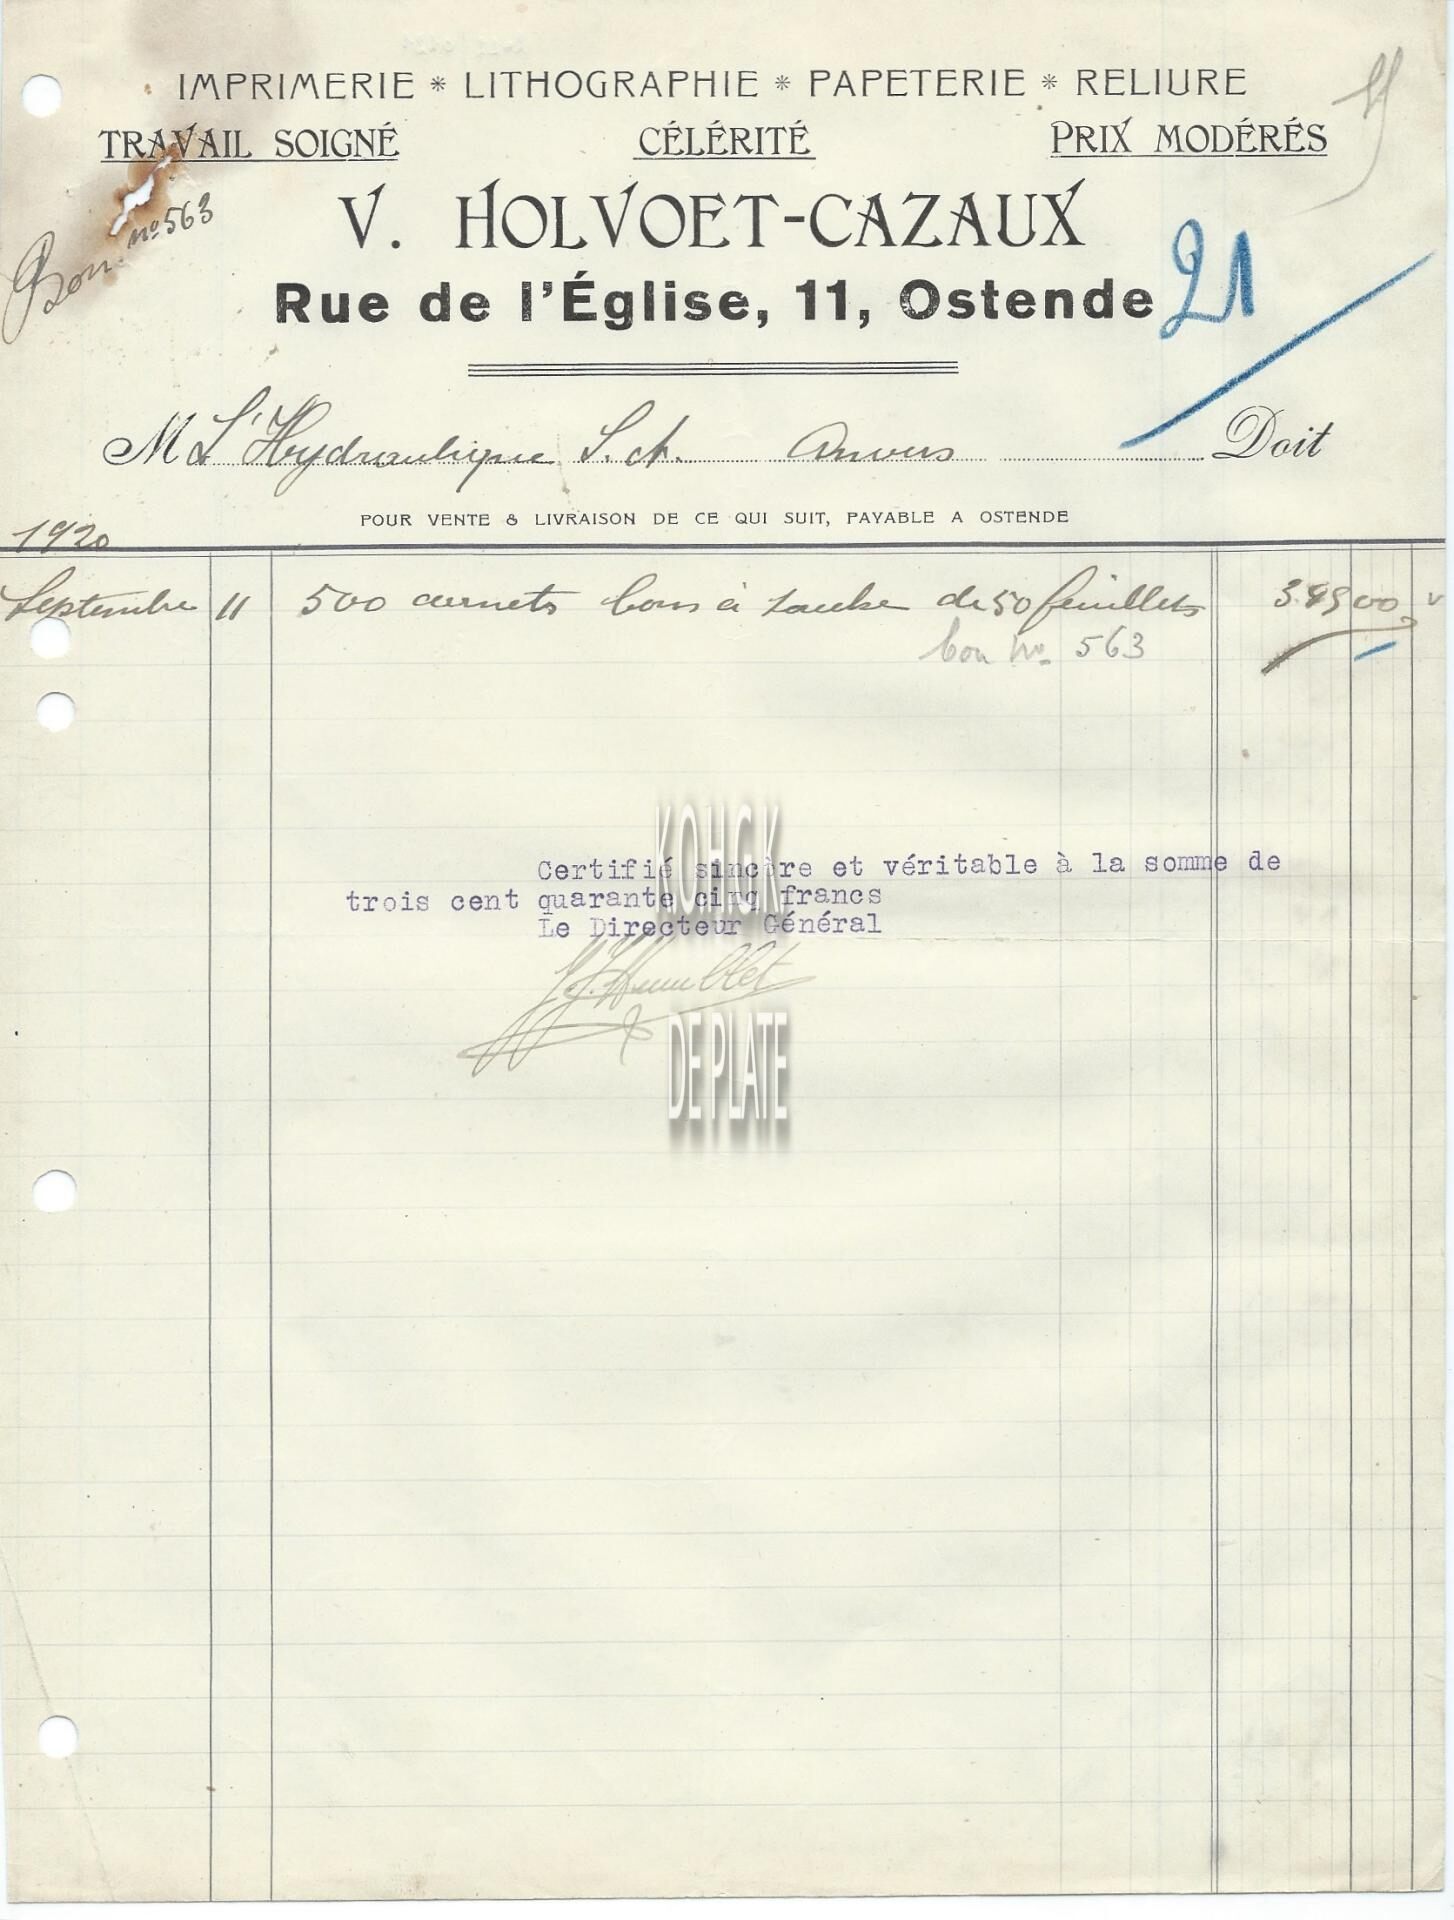 IMPRIMERIE * LITHOGRAPHIE * PAPETERIE * RELIURE
TRAVAIL SOIGNÉ CÉLÉRITÉ PRIX MODÉRÉS
Bon nº 563
V. HOLVOET-CAZAUX
Rue de l'Église, 11, Ostende
21
M L'Hydraulique S.A. Anvers Doit
POUR VENTE & LIVRAISON DE CE QUI SUIT, PAYABLE A OSTENDE
1920
Septembre 11 500 carnets bons à souche de 50 feuillets 00
bon nº 563
KOHGK
Certifié sincère et véritable à la somme de
trois cent quarante cinq francs
Le Directeur Général
DE PLATE